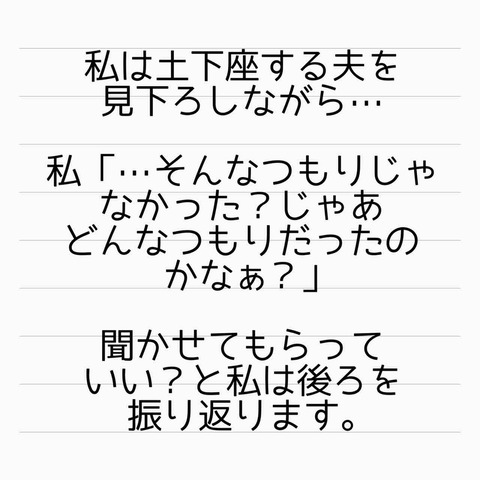 私は土下座する夫を
見下ろしながら…
私「…そんなつもりじゃ
なかった？じゃあ
どんなつもりだったの
かなぁ？」
聞かせてもらって
いい？と私は後ろを
振り返ります。